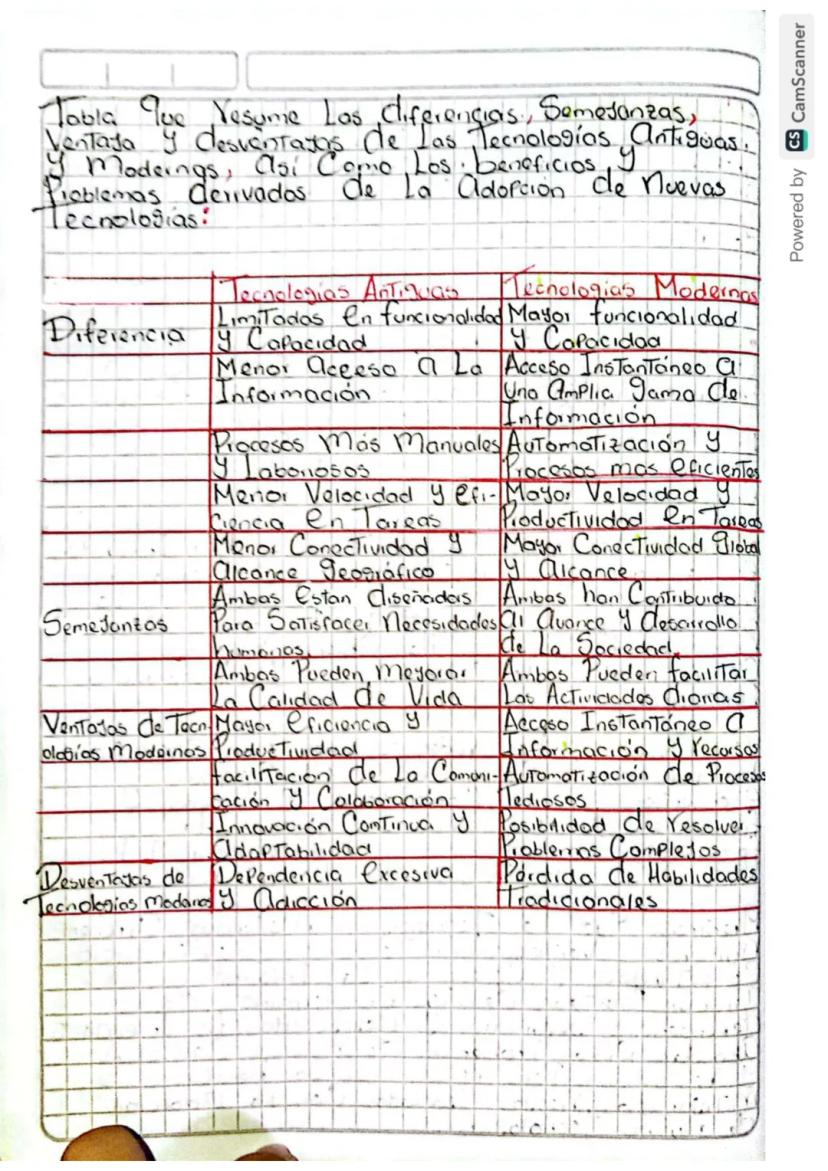 Tabla Que resume Las diferencias, Semejanzas,
Ventaja y desventajas de Las Tecnologías Antiguas.
y Modernas, así Como Los beneficios y
Problemas derivados de La adopción de nuevas
Tecnologías:
Tecnologías Antiguas
Tecnologías Modernas
Diferencia
Limitadas en funcionalidad
y Capacidad
Mayor funcionalidad
y Capacidad
Menor acceso a La
Información
Acceso Instantáneo a
una amplia gama de
Información
Procesos Más Manuales
y Laboriosos
Automatización y
Procesos mas eficientes
Menor Velocidad y efi-
ciencia en Tareas
Mayor Velocidad y
Productividad en Tareas
Menor Conectividad y
alcance geográfico
Mayor Conectividad global
y alcance
Semejanzas
Ambas estan diseñadas
Para Satisfacer necesidades
humanas.
Ambas han Contribuido
al avance y desarrollo
de La Sociedad
Ambas Pueden mejorar
La Calidad de Vida
Ambas Pueden facilitar
Las Actividades diarias
Ventajas de Tecn-
ologías Modernas
Mayor eficiencia y
Productividad
Acceso Instantáneo a
Información y recursos
facilitación de La Comuni-
cación y Colaboración
Automatización de Procesos
Tediosos
Innovación Continua y
adaptabilidad
Posibilidad de resolver
Problemas Complejos
Desventajas de
Tecnologías modernas
Dependencia excesiva
y adicción
Pérdida de Habilidades
Tradicionales
Powered by CS CamScanner